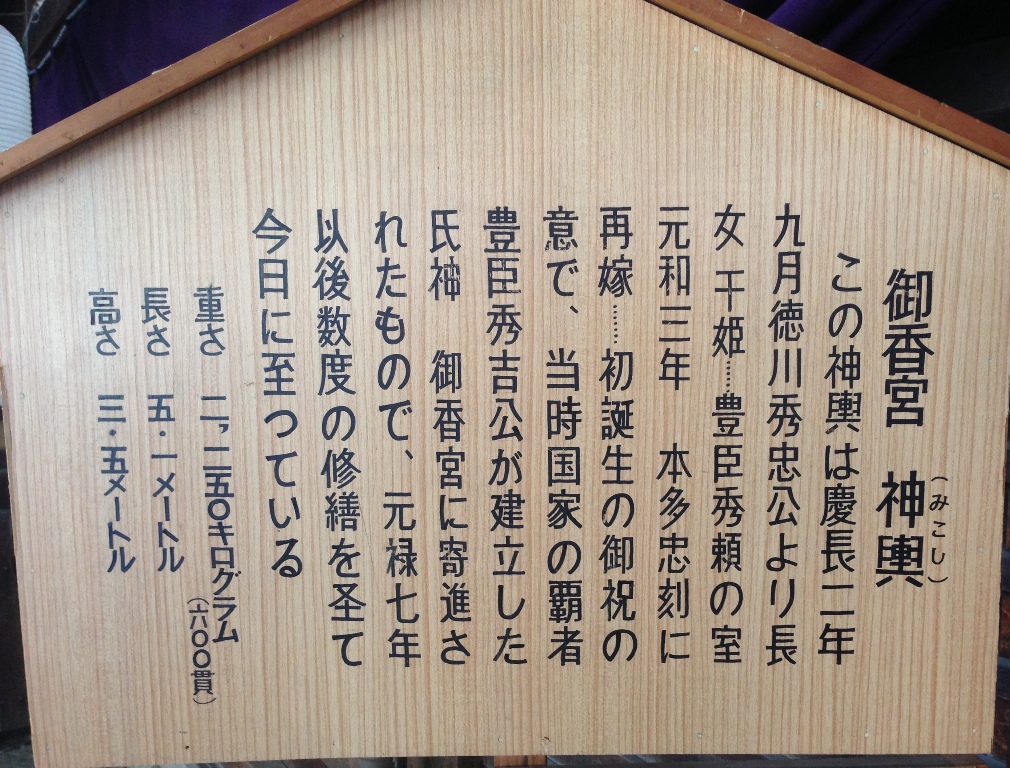 御香宮　神輿（みこし）
この神輿は慶長二年
九月徳川秀忠公より長
女　干姫……豊臣秀頼の室
元和三年　本多忠刻に
再嫁……初誕生の御祝の
意で、当時国家の覇者
豊臣秀吉公が建立した
氏神　御香宮に寄進さ
れたもので、元禄七年
以後数度の修繕を圣て
今日に至つている
重さ　二,二五〇キログラム（六〇〇貫）
長さ　五・一メートル
高さ　三・五メートル